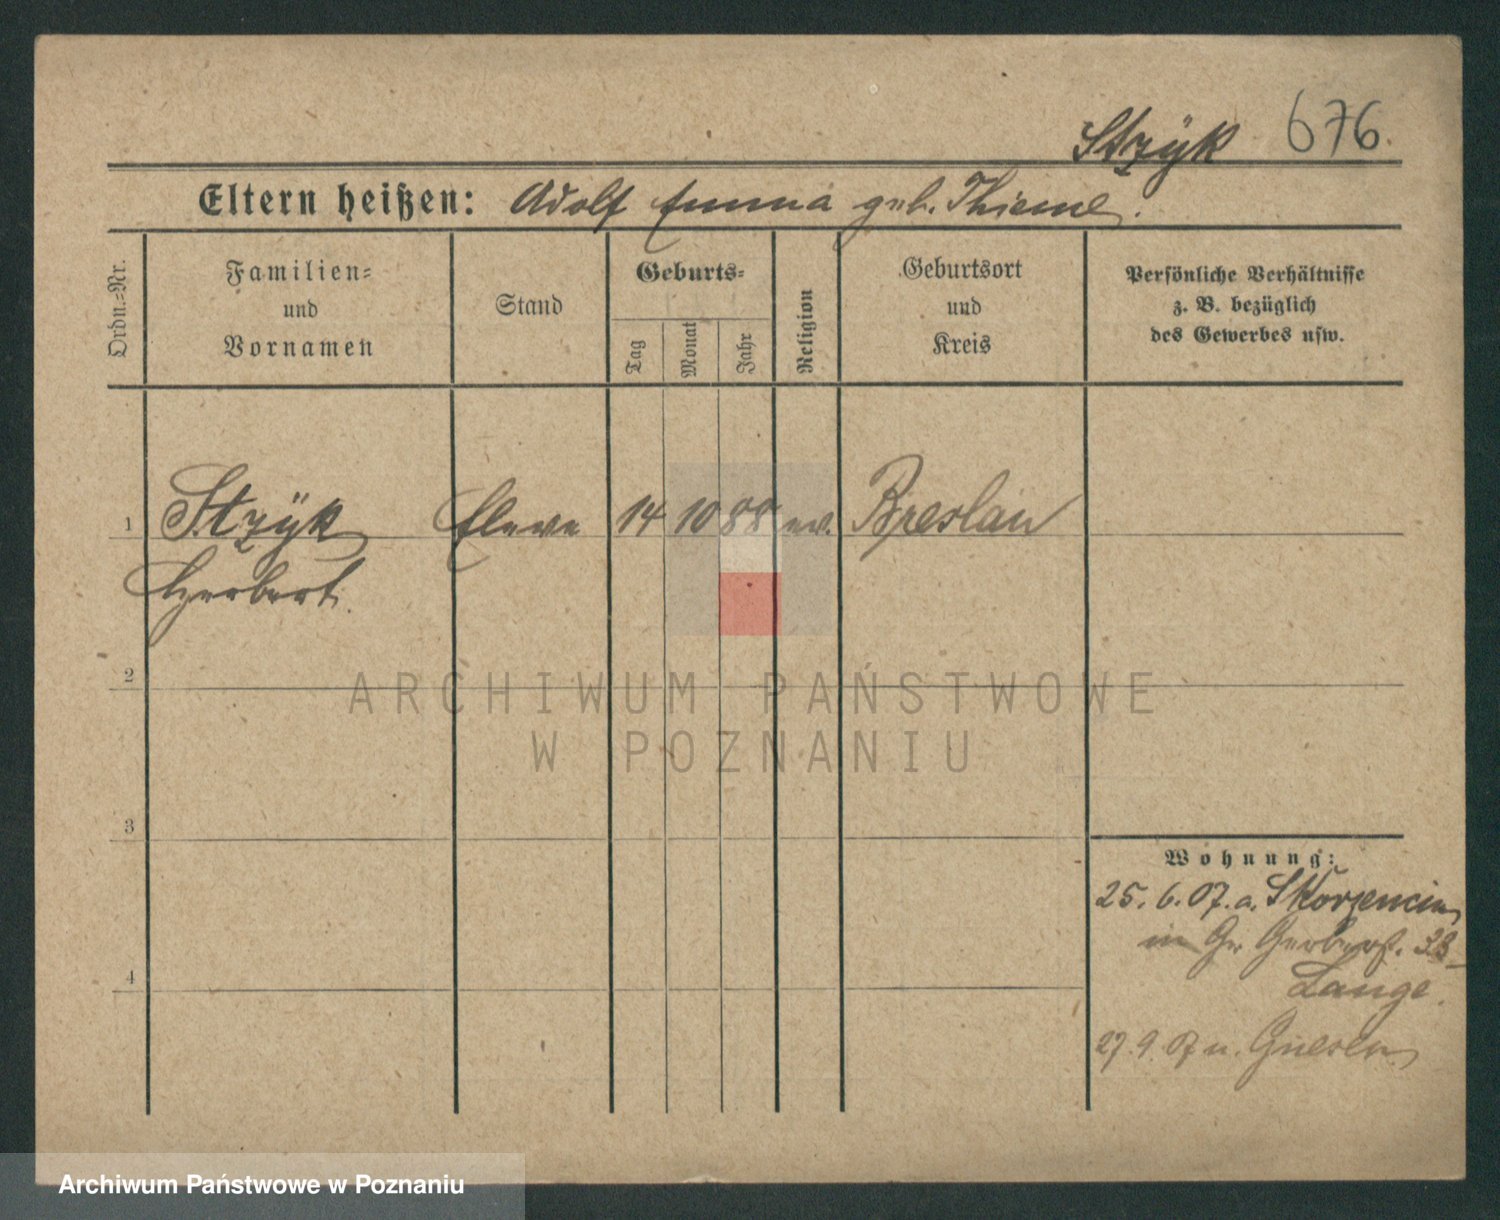 Stzÿk 676.
Eltern heißen: Adolf Emma geb. Thieme.
Ordn.=Nr.
Familien=
und
Vornamen
Stand
Geburts=
Tag
Monat
Jahr
Religion
Geburtsort
und
Kreis
Persönliche Verhältnisse
z. B. bezüglich
des Gewerbes usw.
1 Stzÿk Eleve 14 10 88 ev. Breslau
Herbert.
2
3
4
Wohnung:
25. 6. 07. a.
in Gr. Gerberst. 38
Lange.
27. 9. 07 n. Gnesen
ARCHIWUM PAŃSTWOWE
W POZNANIU
Archiwum Państwowe w Poznaniu